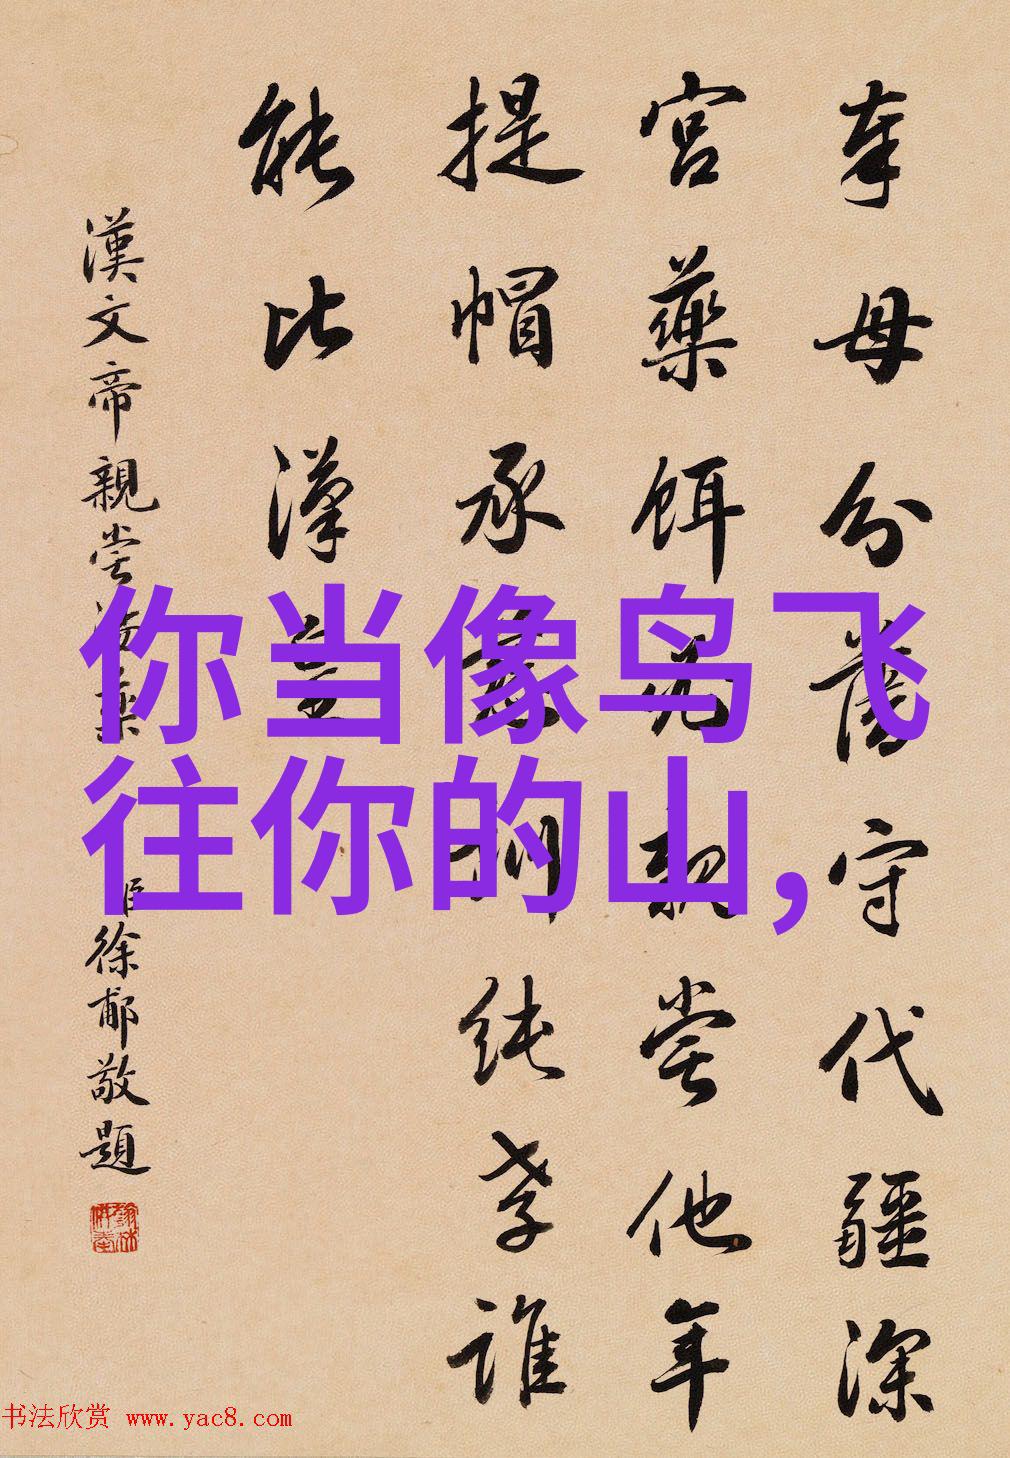 奉母分藩守代疆深
宮藥餌親嘗他年
提帽承慈訓純孝誰
能比漢
漢文帝親嘗湯藥
臣徐郙敬題
你当像鸟飞
往你的山,
书法欣赏 www.yac8.com